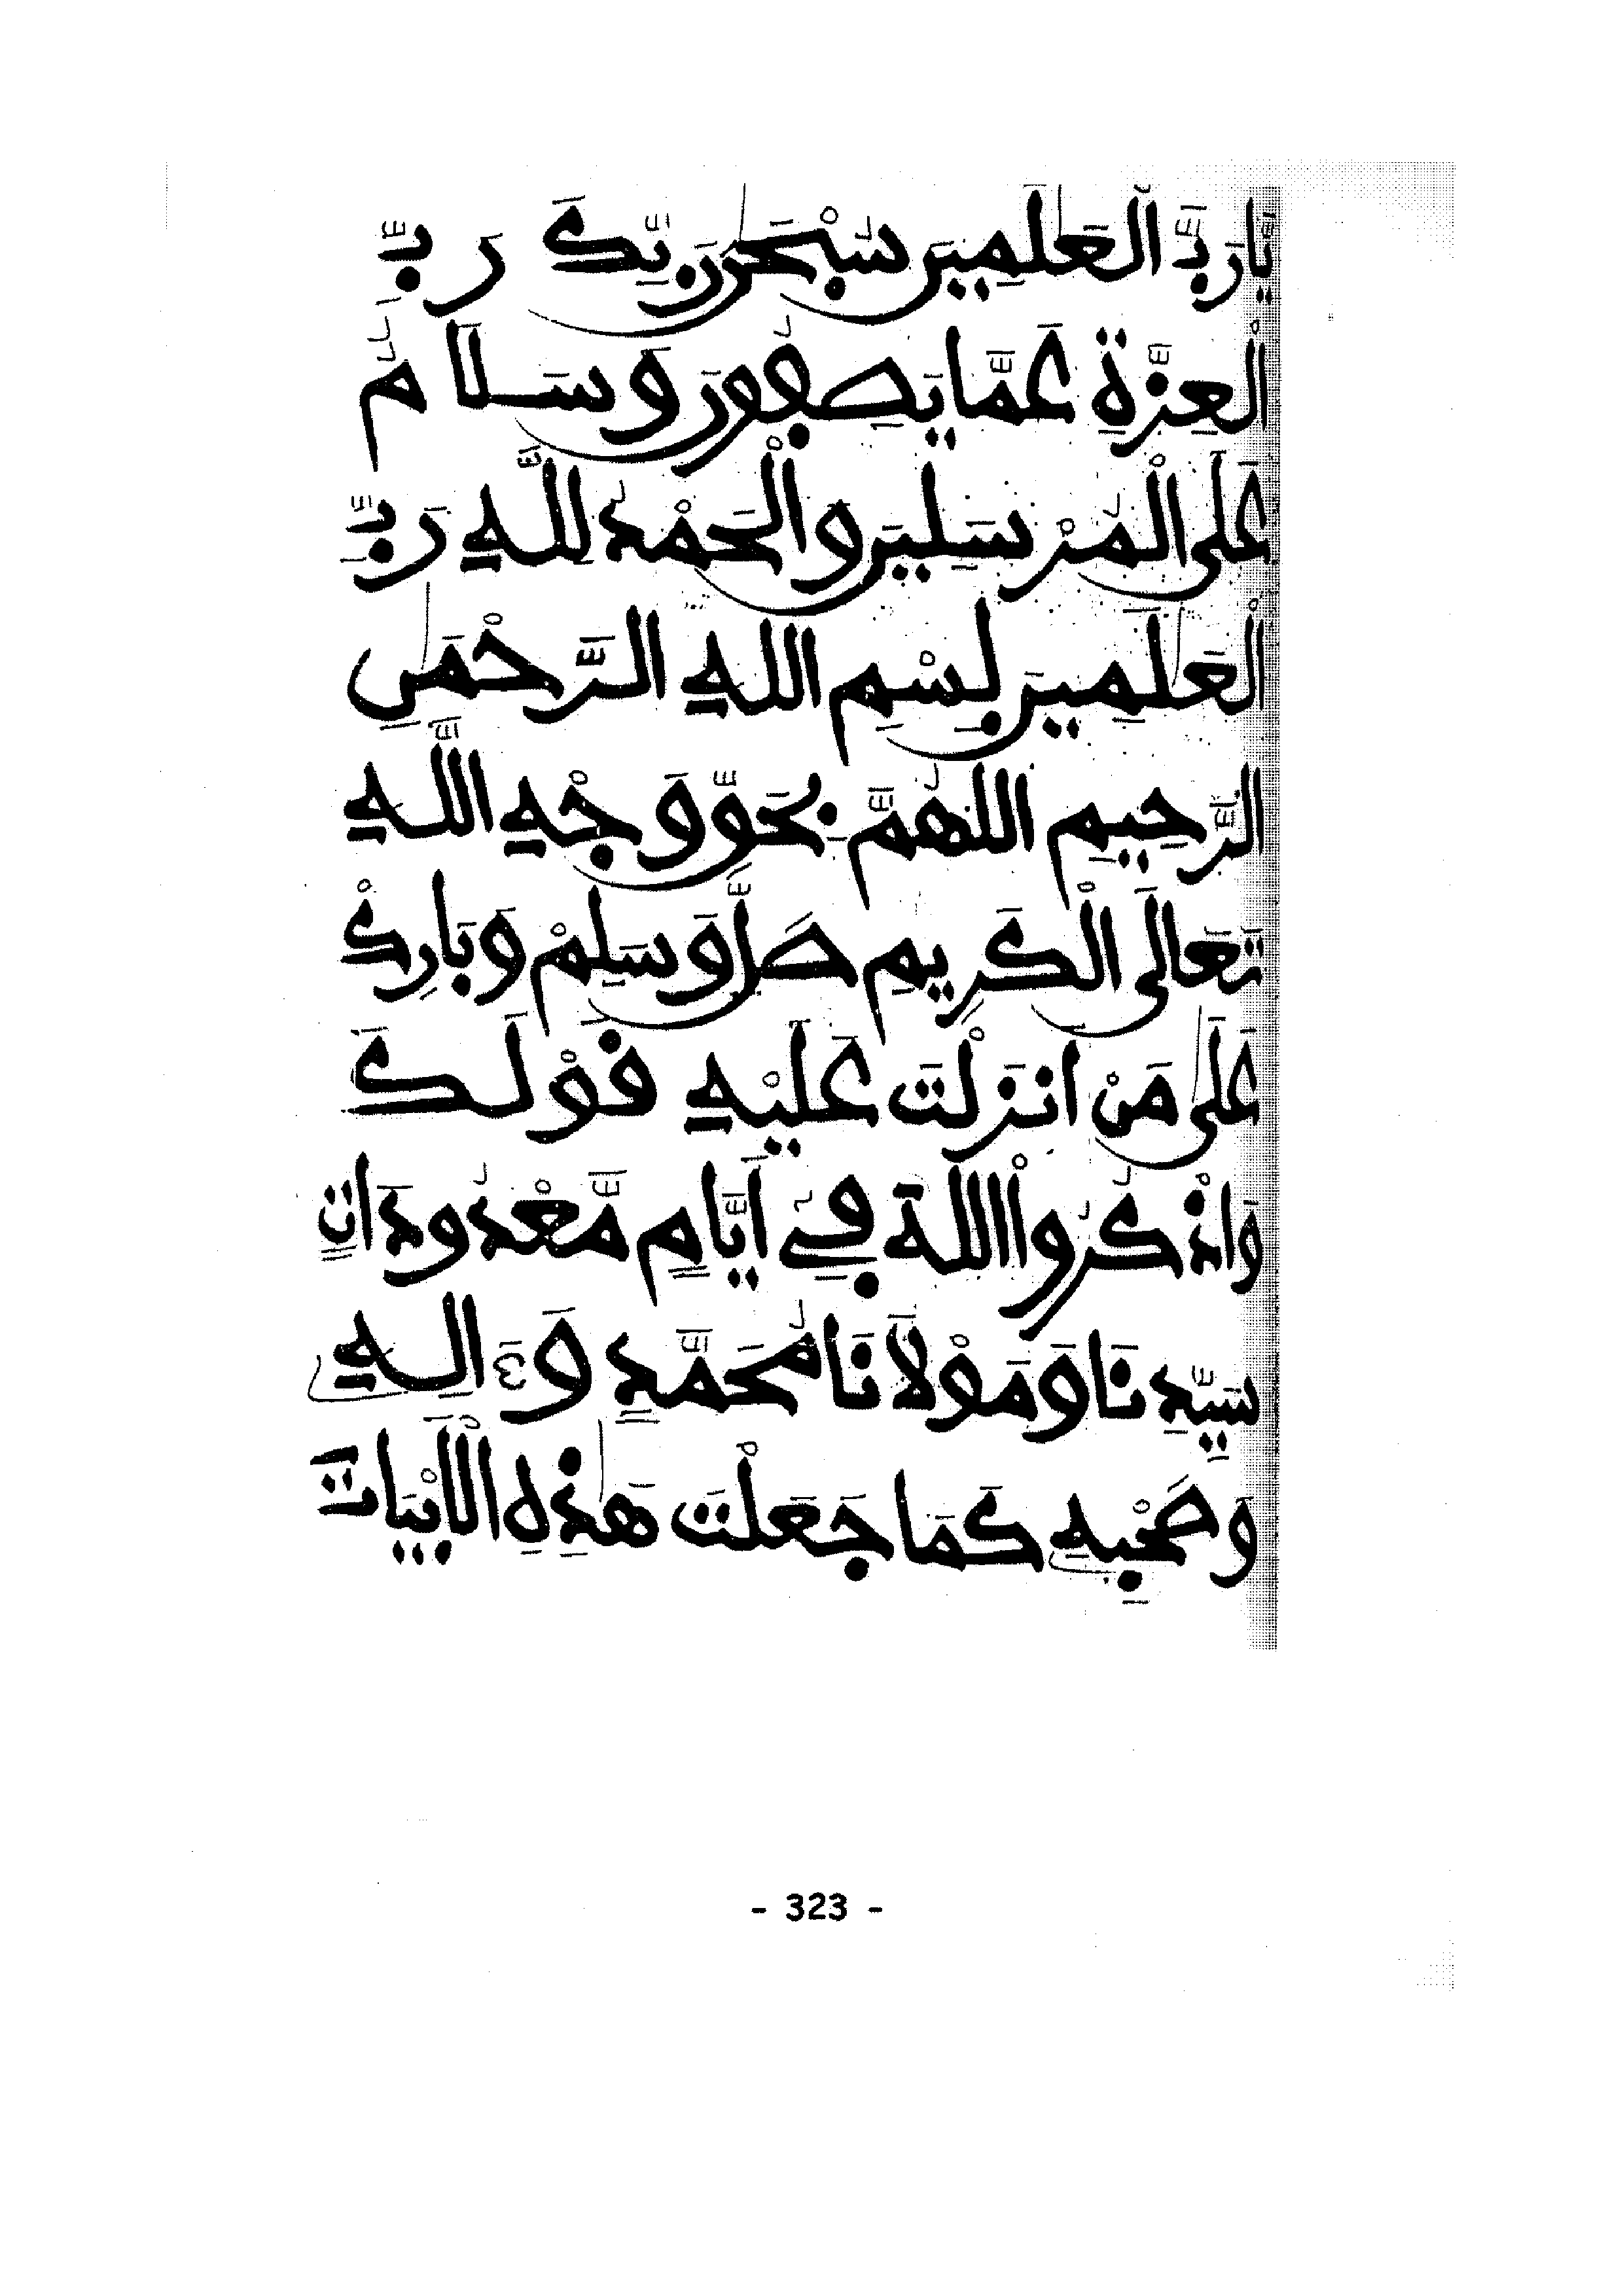 يَارَبَّ الْعَلَمِينَ سُبْحَنَ رَبِّكَ رَبِّ
الْعِزَّةِ عَمَّا يَصِفُونَ وَسَلَامٌ
عَلَى الْمُرْسَلِينَ وَالْحَمْدُ لِلَّهِ رَبِّ
الْعَلَمِينَ بِسْمِ اللهِ الرَّحْمَنِ
الرَّحِيمِ اللهُمَّ بِحَقِّ وَجْهِ اللَّهِ
تَعَالَى الْكَرِيمِ صَلِّ وَسَلِّمْ وَبَارِكْ
عَلَى مَنْ انْزَلْتَ عَلَيْهِ قَوْلَكَ
وَاذْكُرُواْ اللهَ فِي أَيَّامٍ مَّعْدُودَاتٍ
سَيِّدِنَا وَمَوْلَانَا مُحَمَّدٍ وَءَالِهِ
وَصَحْبِهِ كَمَا جَعَلْتَ هَذِهِ الْأَبْيَاتَ
- 323 -